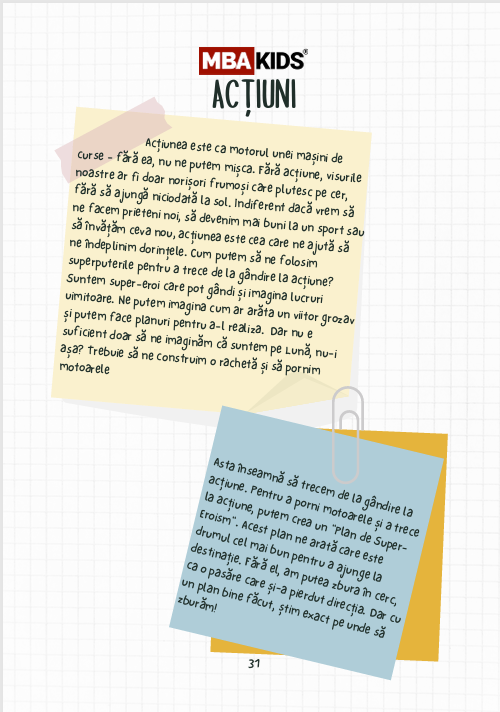 MBA KIDS®
ACȚIUNI
Acțiunea este ca motorul unei mașini de
curse – fără ea, nu ne putem mișca. Fără acțiune, visurile
noastre ar fi doar norișori frumoși care plutesc pe cer,
fără să ajungă niciodată la sol. Indiferent dacă vrem să
ne facem prieteni noi, să devenim mai buni la un sport sau
să învățăm ceva nou, acțiunea este cea care ne ajută să
ne îndeplinim dorințele. Cum putem să ne folosim
superputerile pentru a trece de la gândire la acțiune?
Suntem super-eroi care pot gândi și imagina lucruri
uimitoare. Ne putem imagina cum ar arăta un viitor grozav
și putem face planuri pentru a-l realiza. Dar nu e
suficient doar să ne imaginăm că suntem pe Lună, nu-i
așa? Trebuie să ne construim o rachetă și să pornim
motoarele
Asta înseamnă să trecem de la gândire la
acțiune. Pentru a porni motoarele și a trece
la acțiune, putem crea un "Plan de Super-
Eroism". Acest plan ne arată care este
drumul cel mai bun pentru a ajunge la
destinație. Fără el, am putea zbura în cerc,
ca o pasăre care și-a pierdut direcția. Dar cu
un plan bine făcut, știm exact pe unde să
zburăm!
31